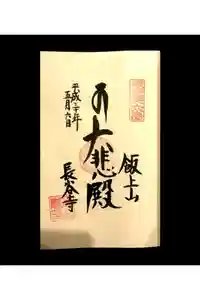 飯上山
大悲殿
長谷寺
平成二十年
五月六日